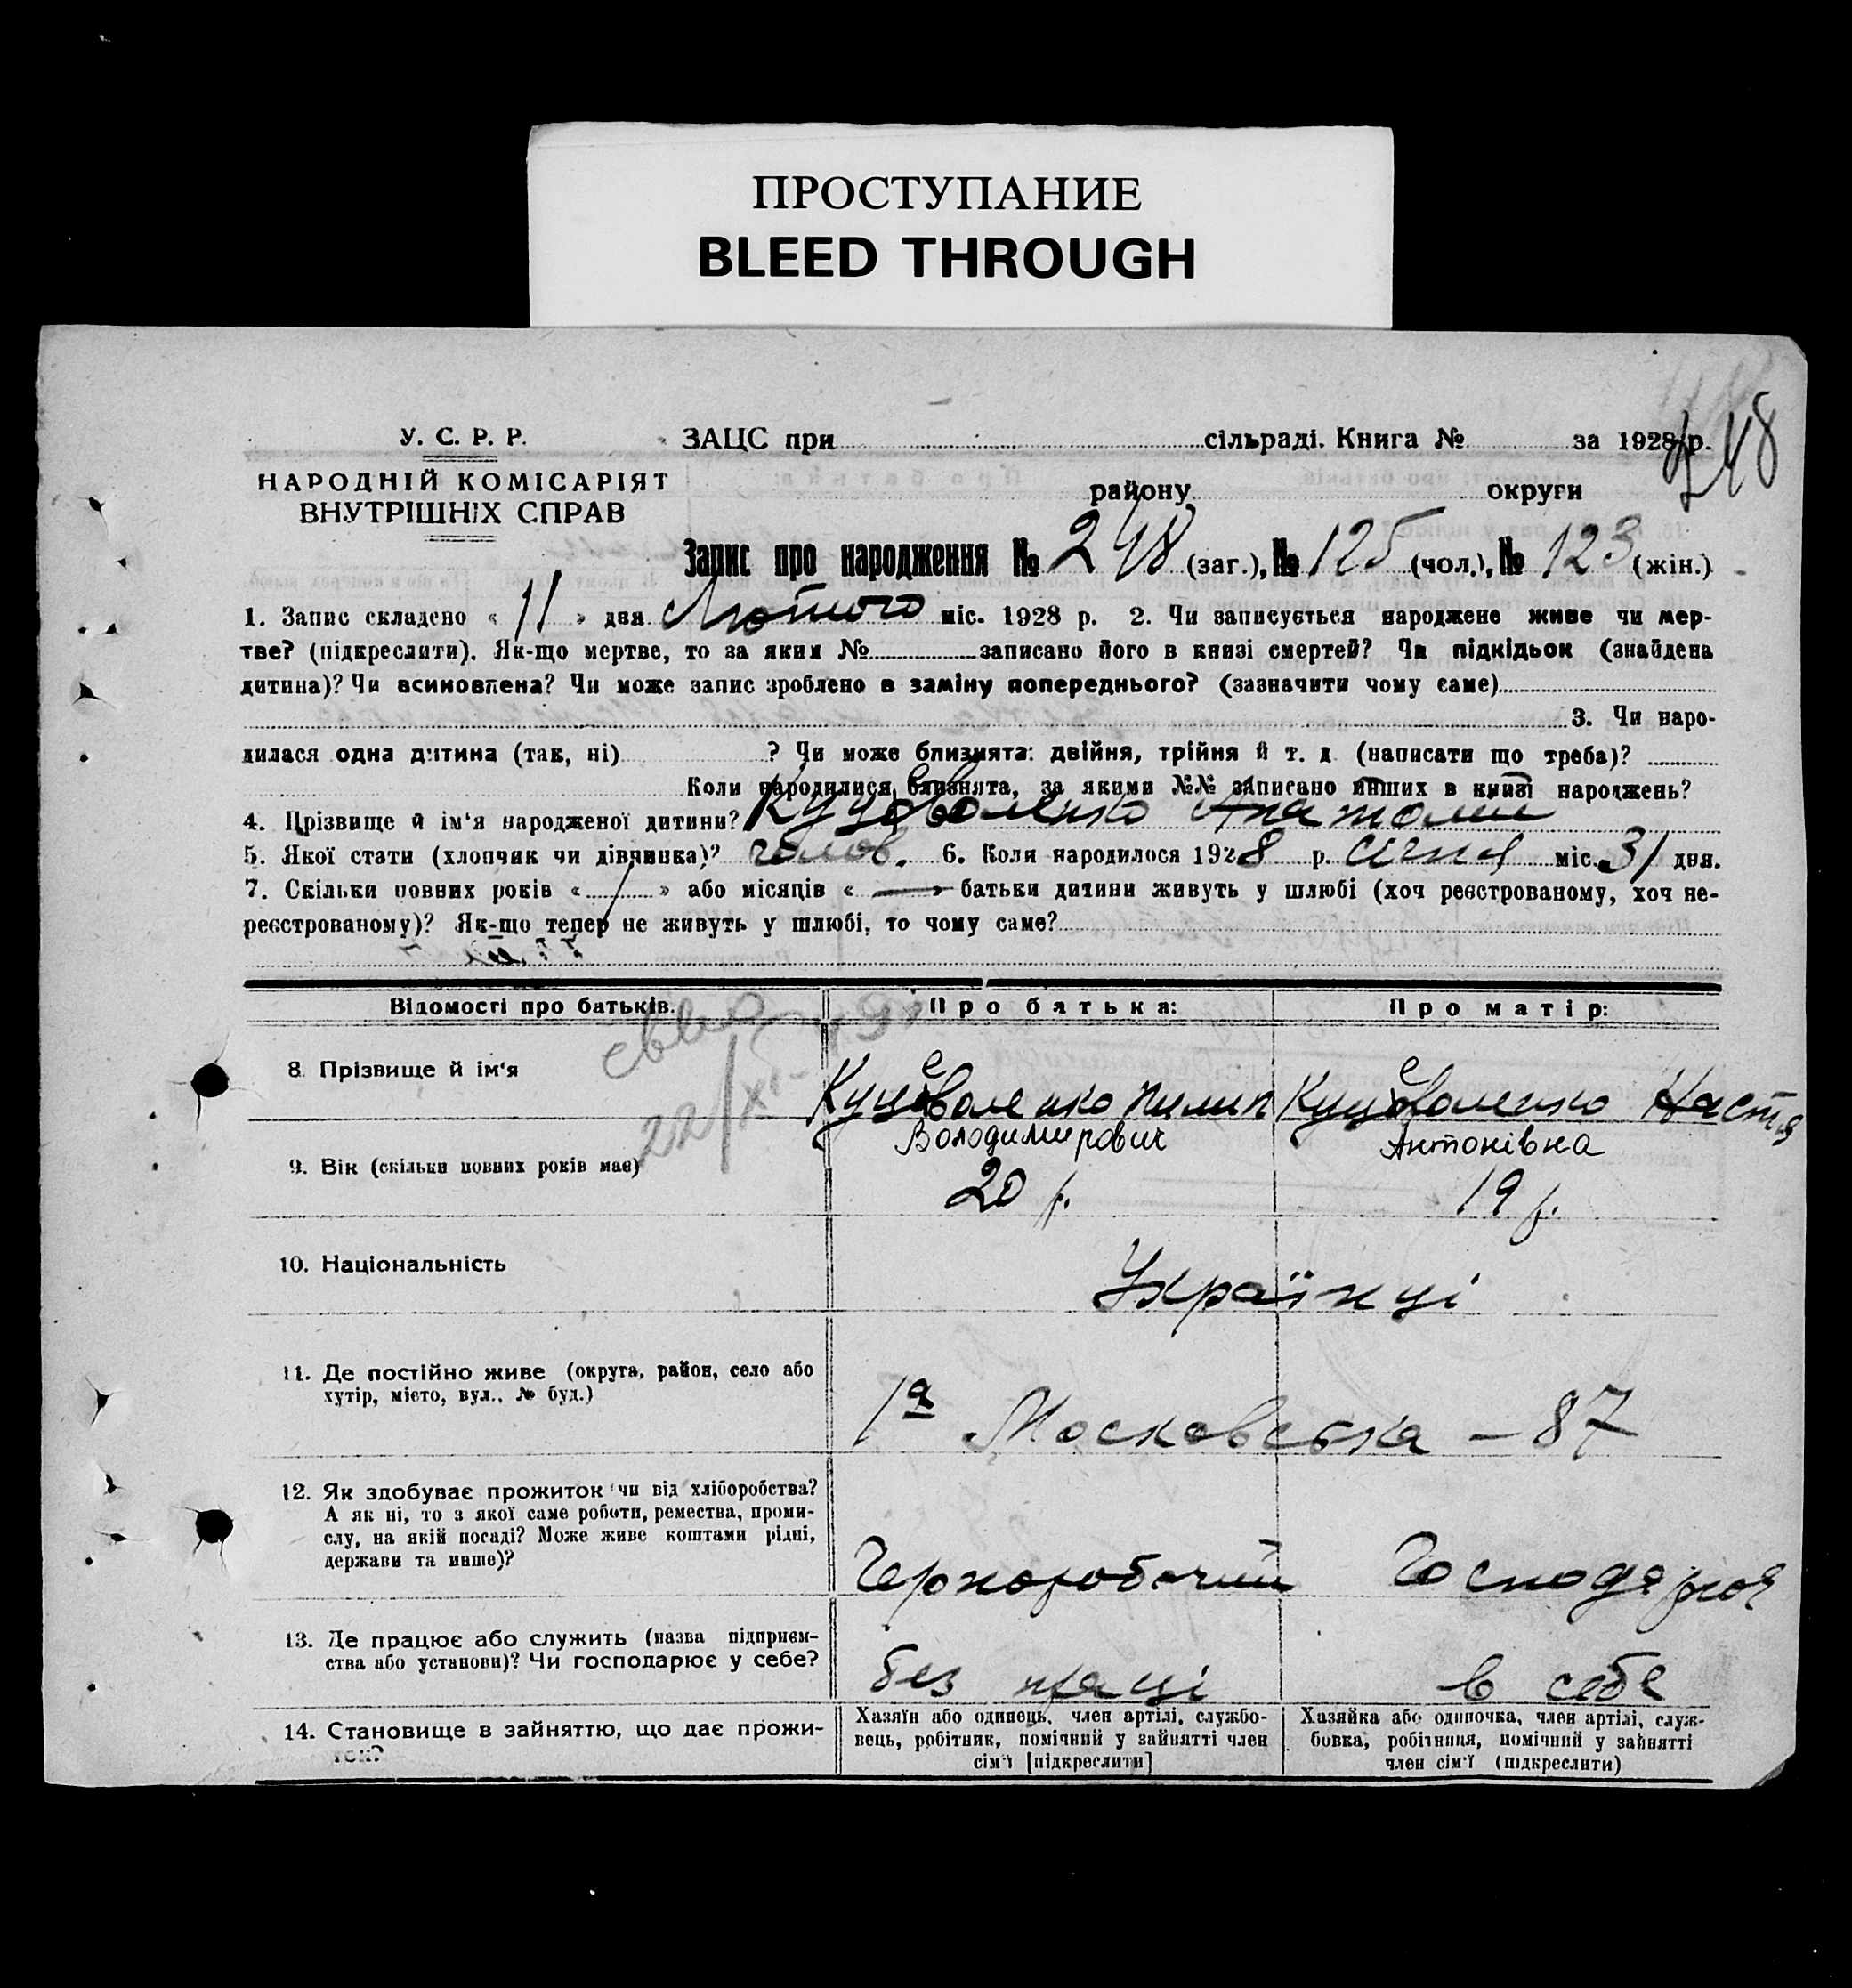 ПРОСТУПАНИЕ
BLEED THROUGH
248
У. С. Р. Р.
НАРОДНІЙ КОМІСАРІЯТ
ВНУТРІШНІХ СПРАВ
ЗАЦС при сільраді. Книга № за 1928 р.
району округи
Запис про народження № 248 (заг.), № 125 (чол.), № 123 (жін.)
1. Запис складено « 11 » дня Лютого міс. 1928 р. 2. Чи записується народжене живе чи мер-
тве? (підкреслити). Як-що мертве, то за яким № записано його в книзі смертей? Чи підкідьок (знайдена
дитина)? Чи всиновлена? Чи може запис зроблено в заміну попереднього? (зазначити чому саме)
3. Чи наро-
дилася одна дитина (так, ні) ? Чи може близнята: двійня, трійня й т. д. (написати що треба)?
Коли народилися близнята, за якими №№ записано инших в книзі народжень?
4. Прізвище й ім'я народженої дитини? Куцеволенко Анатолий
5. Якої стати (хлопчик чи дівчинка)? чолов. 6. Коли народилося 1928 р. січня міс. 31 дня.
7. Скільки повних років « 1 » або місяців « — » батьки дитини живуть у шлюбі (хоч реєстрованому, хоч не-
реєстрованому)? Як-що тепер не живуть у шлюбі, то чому саме?
Відомості про батьків. Про батька: Про матір:
22/XI
8. Прізвище й ім'я Куцеволенко Пилип Куцеволенко Настя
Володимирович Антонівна
9. Вік (скільки повних років має) 20 р. 19 р.
10. Національність Українці
11. Де постійно живе (округа, район, село або
хутір, місто, вул., № буд.) 1а Московська – 87
12. Як здобуває прожиток чи від хліборобства?
А як ні, то з якої саме роботи, ремества, проми-
слу, на якій посаді? Може живе коштами рідні,
держави та инше)? Чорноробочий Господарює
13. Де працює або служить (назва підприєм-
ства або установи)? Чи господарює у себе? без праці в себе
14. Становище в зайняттю, що дає прожи-
ток?
Хазяїн або одинець, член артілі, службо-
вець, робітник, помічний у зайнятті член
сім'ї [підкреслити]
Хазяйка або одиночка, член артілі, служ-
бовка, робітниця, помічний у зайнятті
член сім'ї (підкреслити)